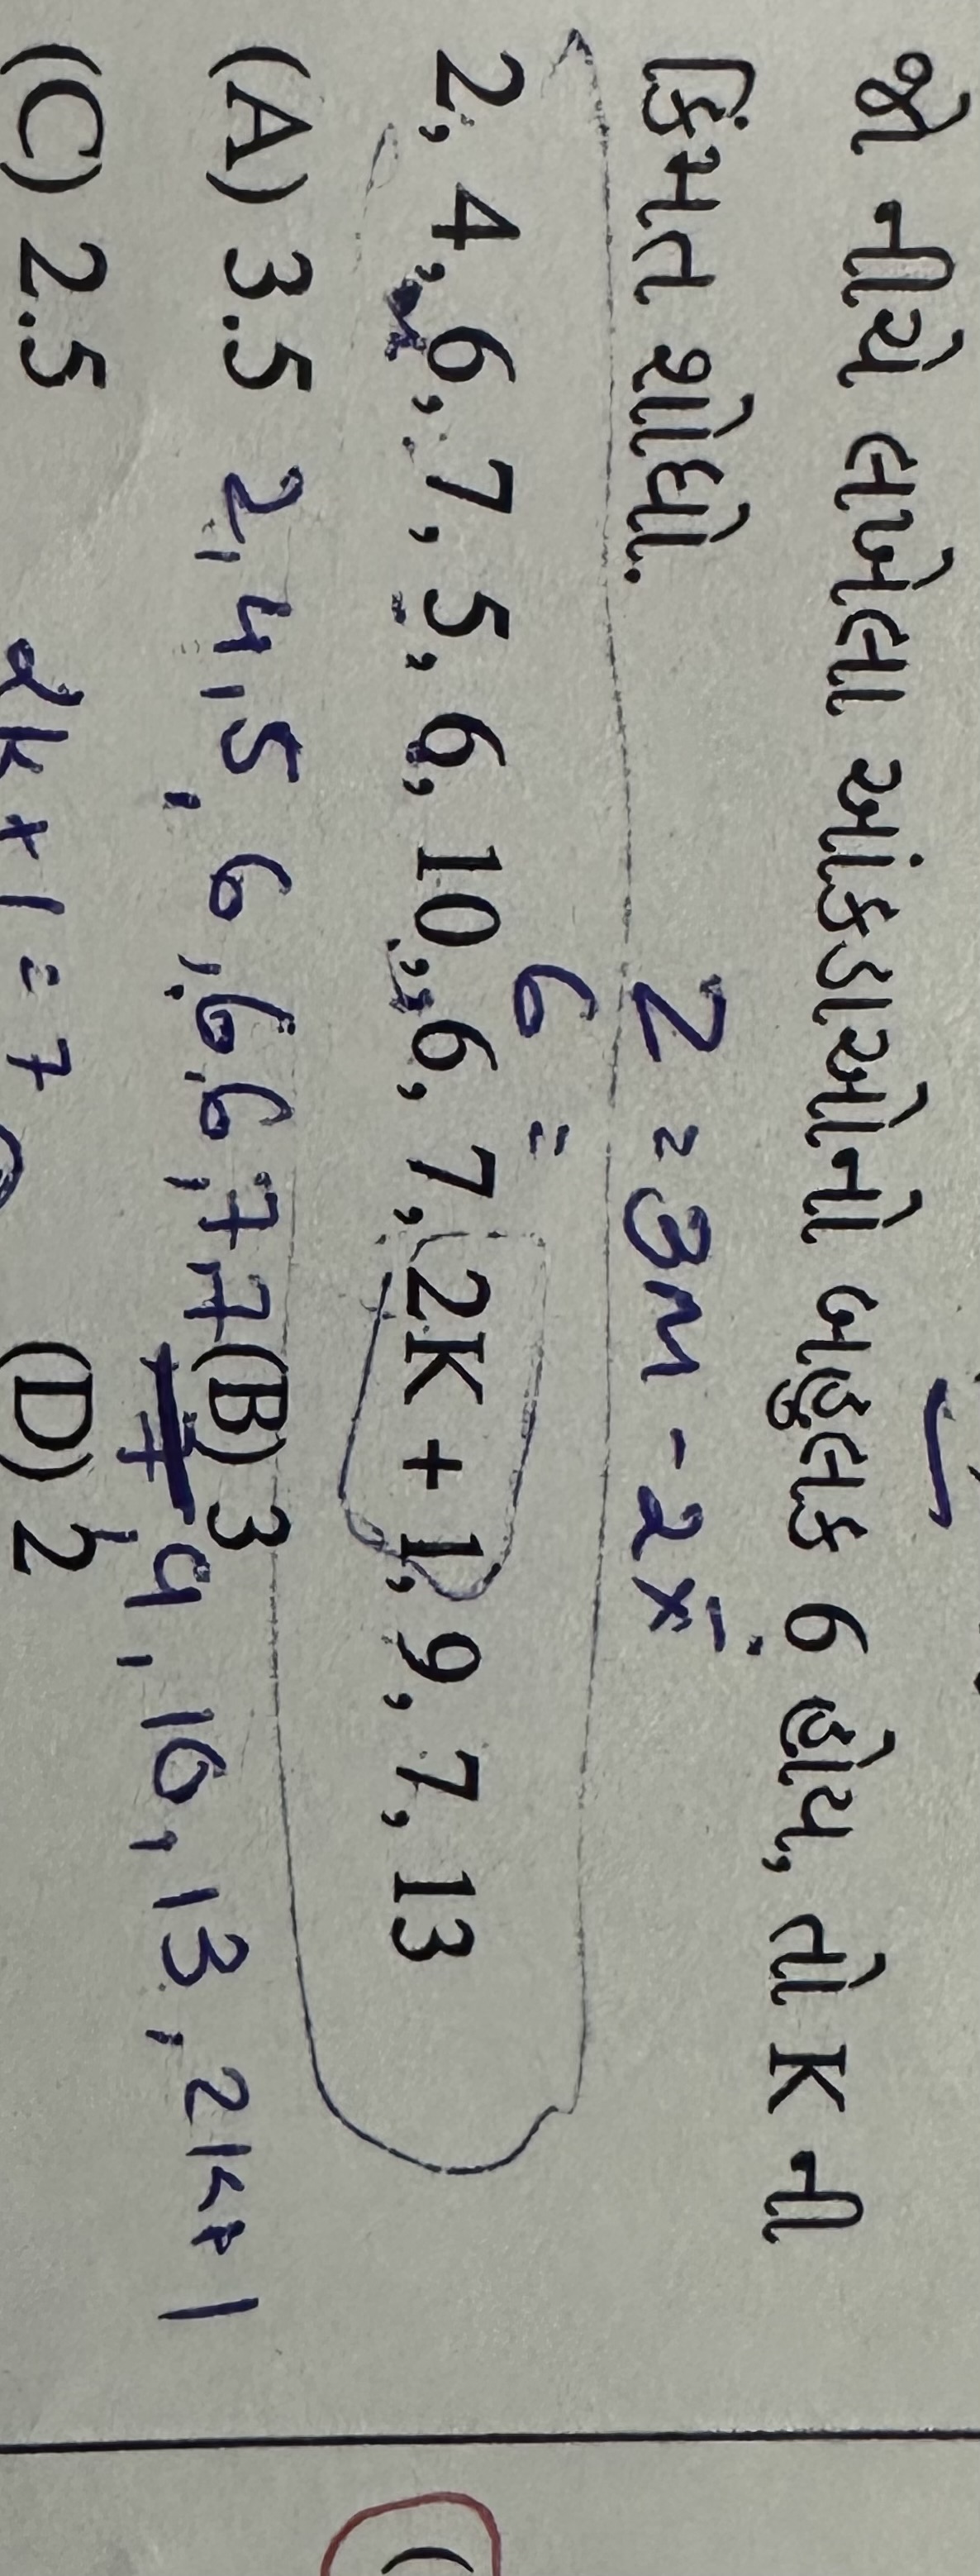 જો નીચે લખેલા આંકડાઓનો બહુલક 6 હોય, તો K ની
કિંમત શોધો.
Z = 3M - 2x̄
6 =
2, 4, 6, 7, 5, 6, 10, 6, 7, 2K + 1, 9, 7, 13
(A) 3.5
(B) 3
2, 4, 5, 6, 6, 6, 7, 7
7, 9, 10, 13, 2K+1
(C) 2.5
(D) 2
2K+1=7